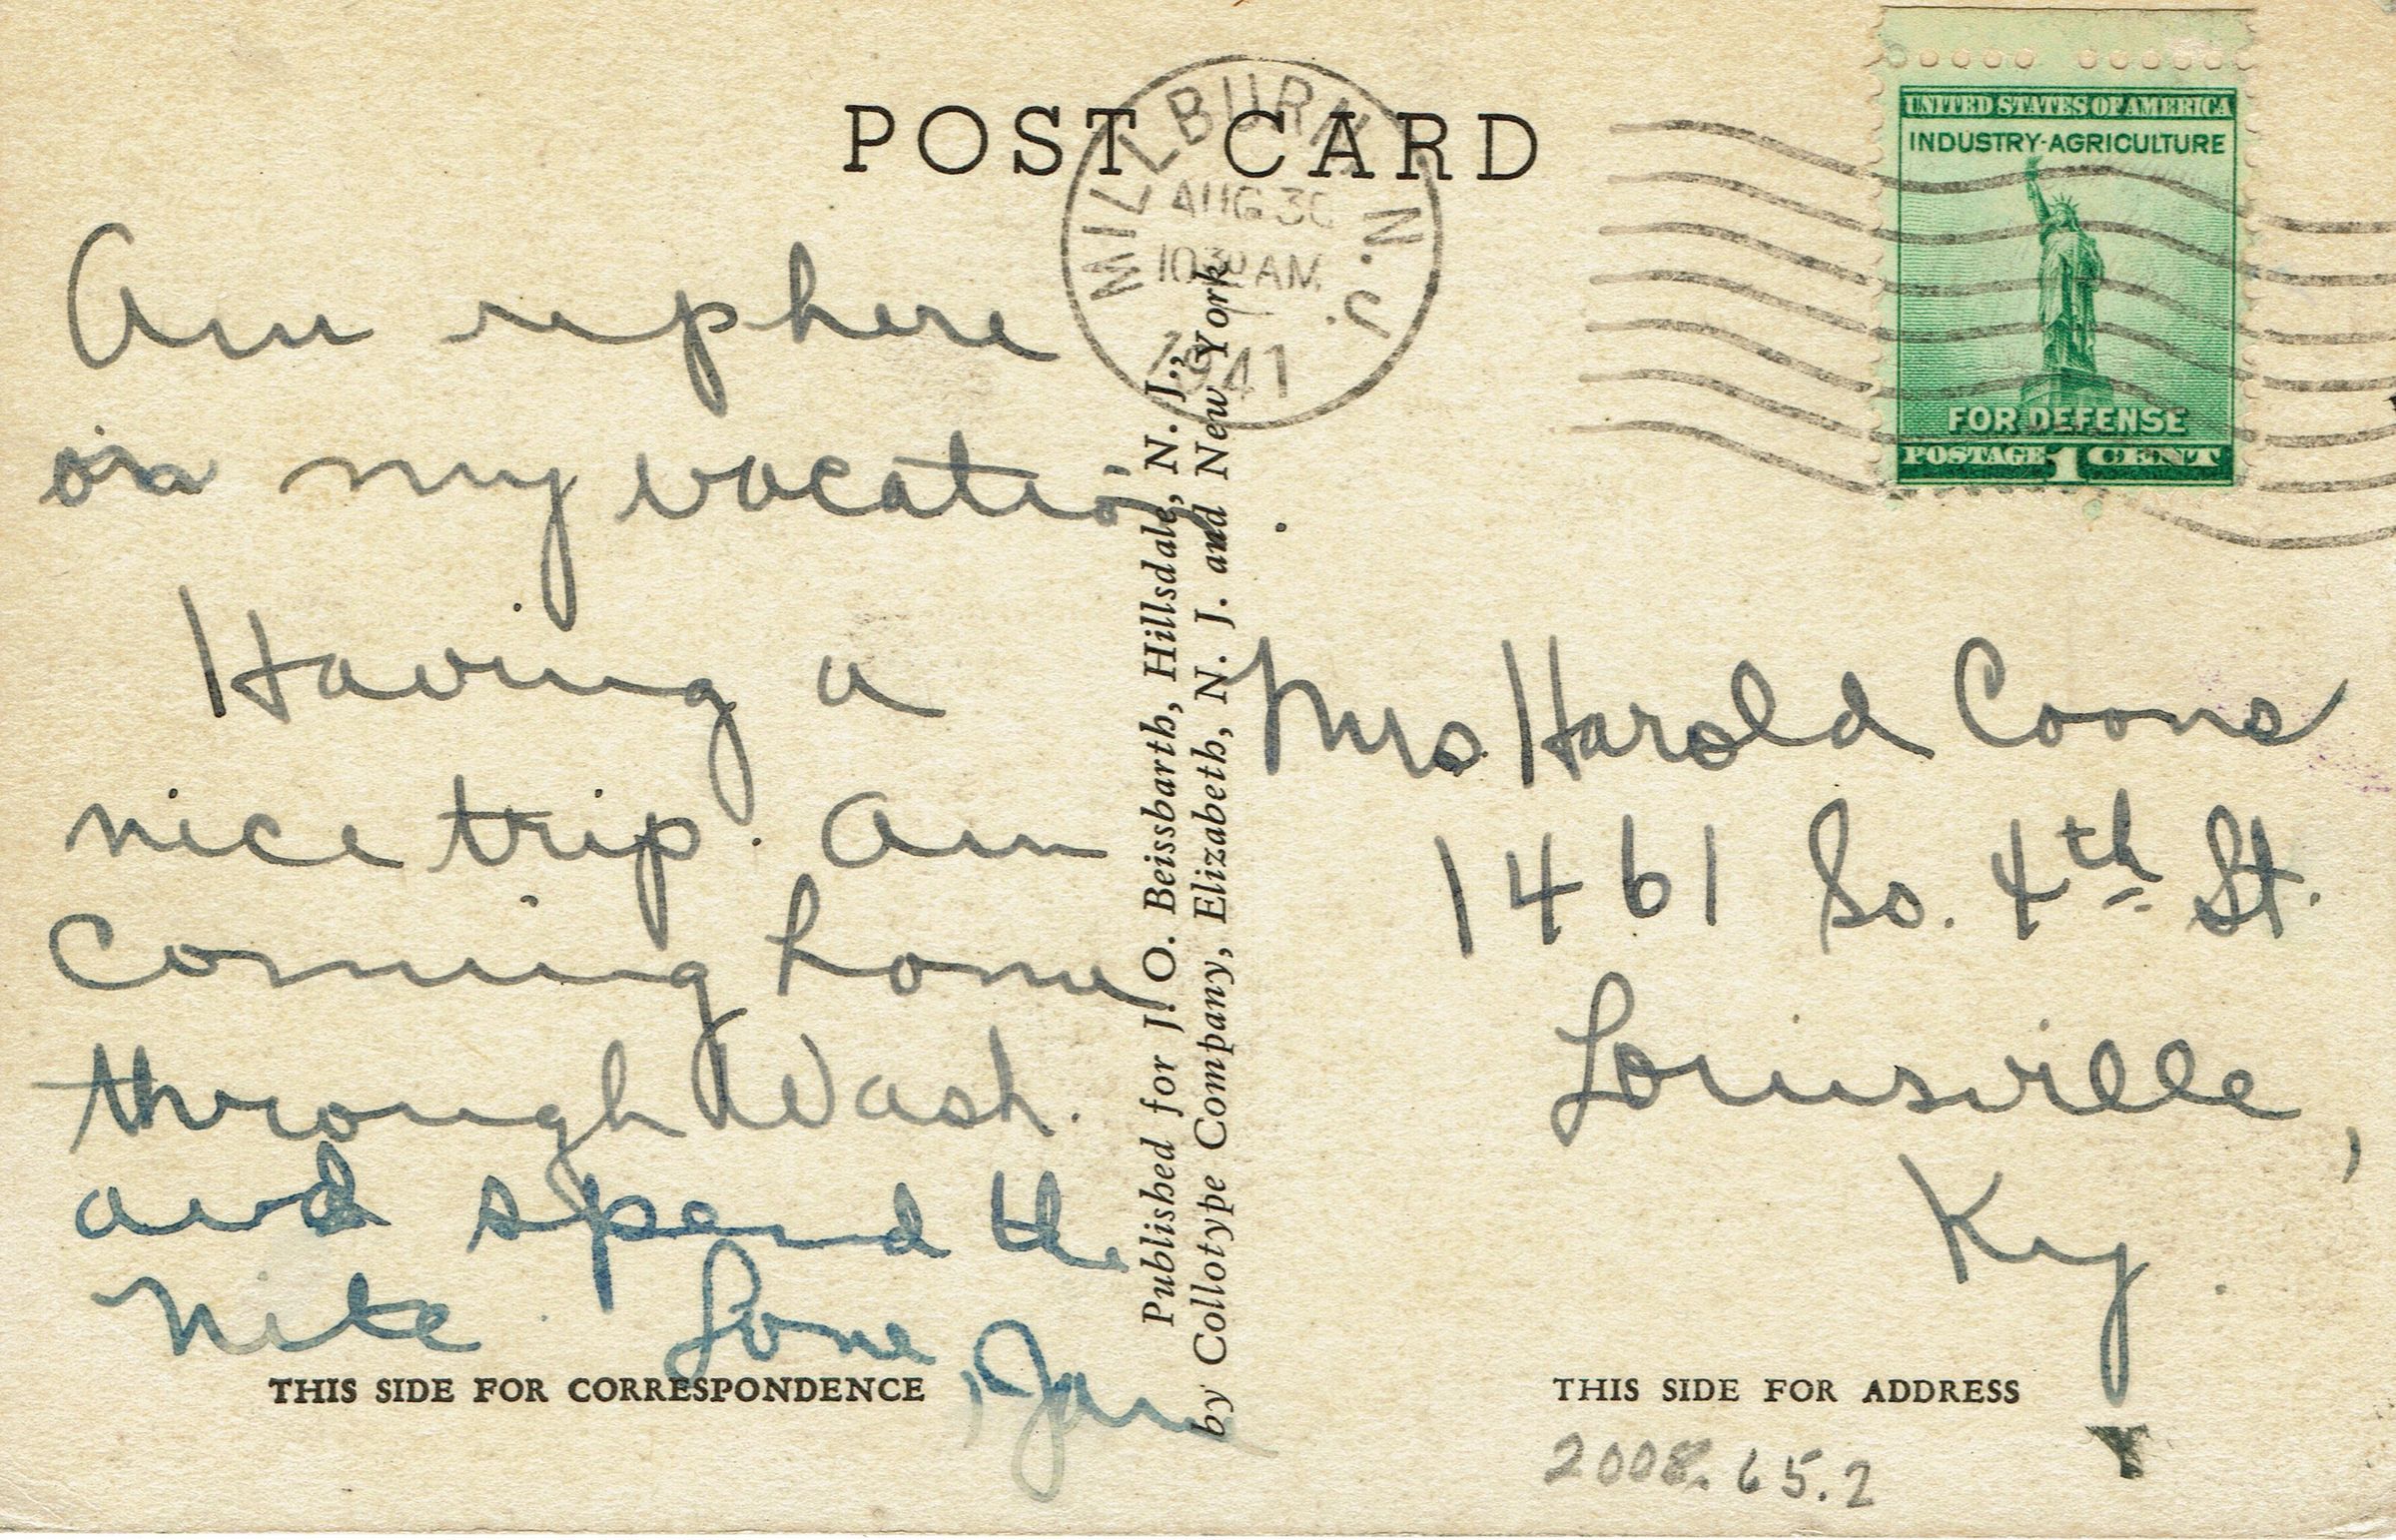 POST CARD
MILLBURN, N.J.
AUG 30
10 30 AM
1941
UNITED STATES OF AMERICA
INDUSTRY-AGRICULTURE
FOR DEFENSE
POSTAGE 1 CENT
Am up here
on my vacation.
Having a
nice trip. Am
Coming home
through Wash.
and spend the
Nite. Love, Jan
THIS SIDE FOR CORRESPONDENCE
Published for J. O. Beissbarth, Hillsdale, N. J.,
by Collotype Company, Elizabeth, N. J. and New York
Mrs Harold Coons
1461 So. 4th St.
Louisville,
Ky.
THIS SIDE FOR ADDRESS
2008.65.2